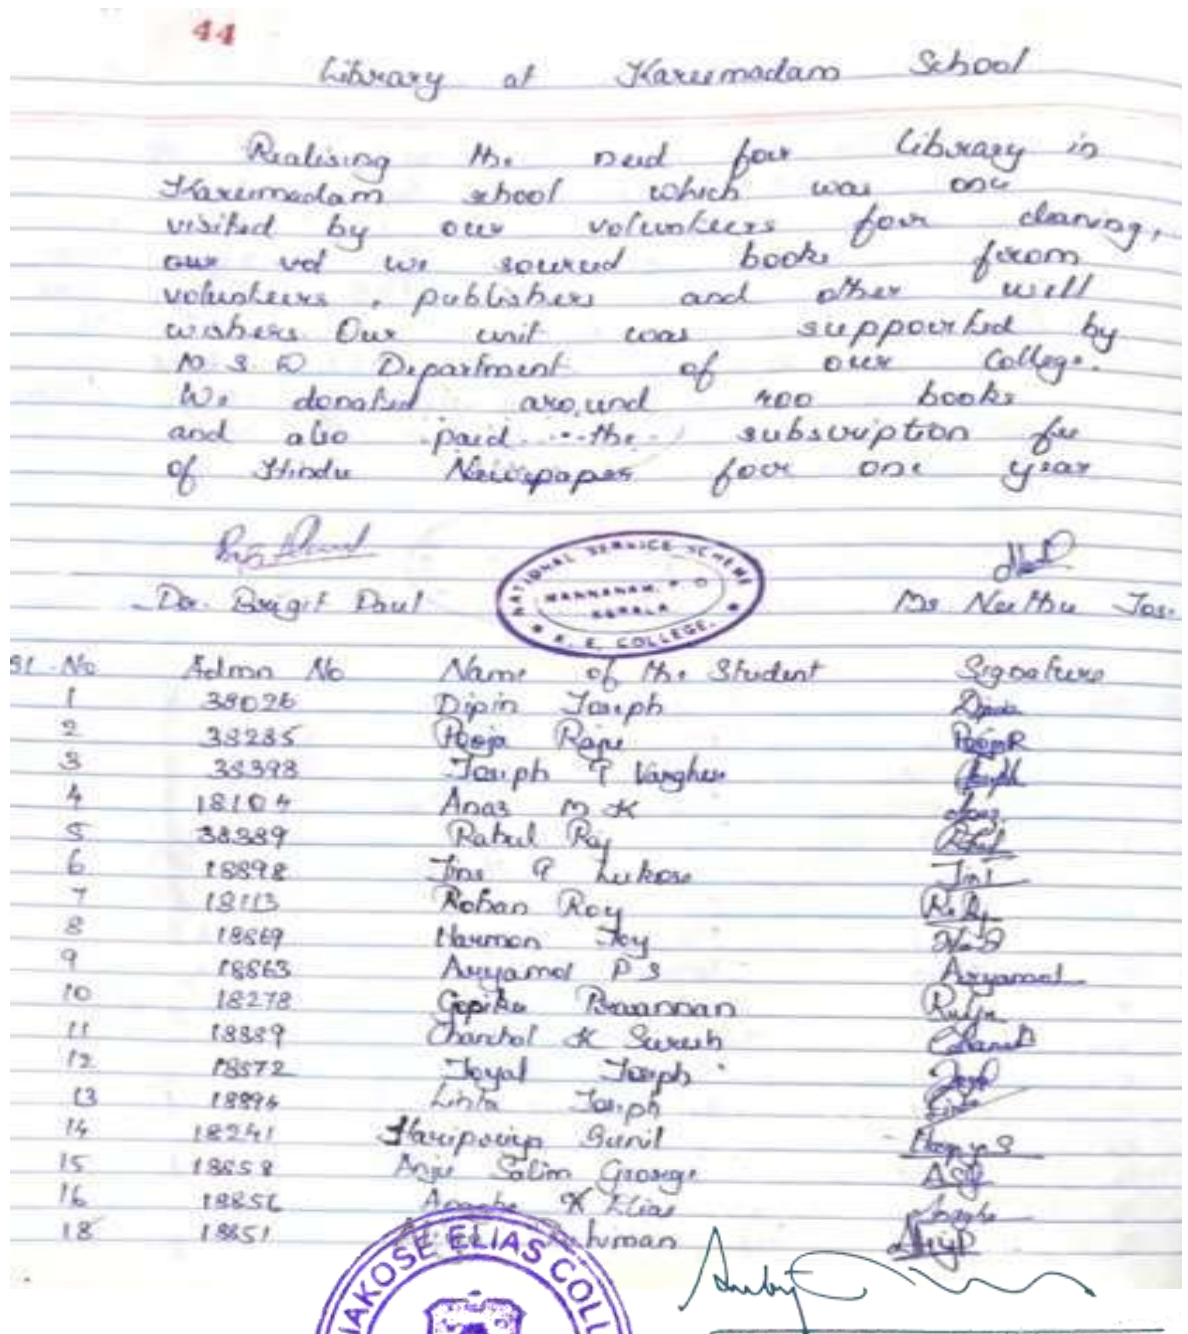 44
Library at Karumadam School
Realising the need for Library in
Karumadam school which was one
visited by our volunteers for cleaning,
our vol we sourced books from
volunteers, publishers and other well
wishers. Our unit was supported by
M.S.W Department of our College.
We donated around 400 books
and also paid the subscription fee
of Hindu Newspaper for one year
Dr. Brigit Paul
Ms Neethu Jos
NATIONAL SERVICE SCHEME
MANNANAM, P.O
KERALA
K. E. COLLEGE.
Sl. No Admn No Name of the Student Signature
1 38026 Dipin Joseph
2 38285 Pooja Raju Pooja R
3 38398 Joseph T Varghese
4 18104 Anas M K
5 38389 Rahul Raj
6 18898 Jins Lukose
7 18113 Rohan Roy
8 18869 Harmon Joy
9 18863 Aryamol P S Aryamol
10 18278 Gopika
11 18389 K Suresh
12 18572 Joyal Joseph
13 1889 Linta Joseph
14 18241 Haripriya Sunil
15 18658 Anju Salim George
16 K Elias
18 18851
AKOSE ELIAS COLL